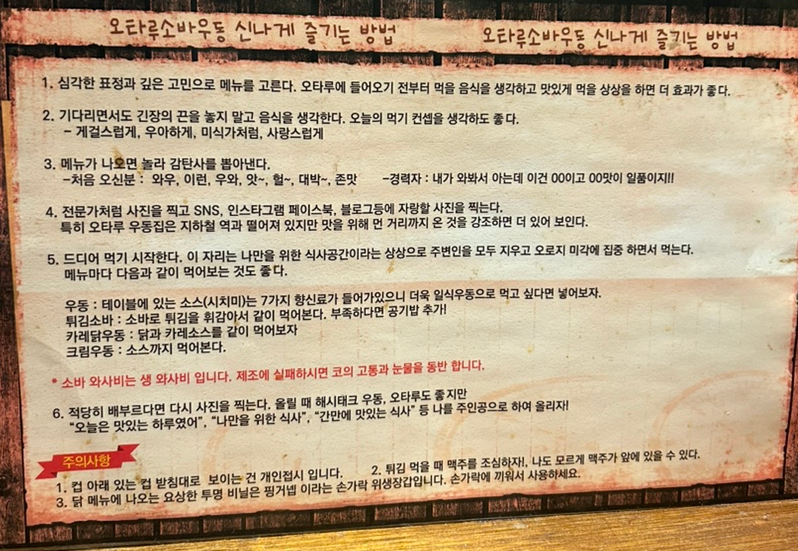 오타루소바우동 신나게 즐기는 방법 오타루소바우동 신나게 즐기는 방법
1. 심각한 표정과 깊은 고민으로 메뉴를 고른다. 오타루에 들어오기 전부터 먹을 음식을 생각하고 맛있게 먹을 상상을 하면 더 효과가 좋다.
2. 기다리면서도 긴장의 끈을 놓지 말고 음식을 생각한다. 오늘의 먹기 컨셉을 생각하도 좋다.
- 게걸스럽게, 우아하게, 미식가처럼, 사랑스럽게
3. 메뉴가 나오면 놀라 감탄사를 뽑아낸다.
-처음 오신분 : 와우, 이런, 우와, 앗~, 헐~, 대박~, 존맛 -경력자 : 내가 와봐서 아는데 이건 00이고 00맛이 일품이지!!
4. 전문가처럼 사진을 찍고 SNS, 인스타그램 페이스북, 블로그등에 자랑할 사진을 찍는다.
특히 오타루 우동집은 지하철 역과 떨어져 있지만 맛을 위해 먼 거리까지 온 것을 강조하면 더 있어 보인다.
5. 드디어 먹기 시작한다. 이 자리는 나만을 위한 식사공간이라는 상상으로 주변인을 모두 지우고 오로지 미각에 집중 하면서 먹는다.
메뉴마다 다음과 같이 먹어보는 것도 좋다.
우동 : 테이블에 있는 소스(시치미)는 7가지 향신료가 들어가있으니 더욱 일식우동으로 먹고 싶다면 넣어보자.
튀김소바 : 소바로 튀김을 휘감아서 같이 먹어본다. 부족하다면 공기밥 추가!
카레닭우동 : 닭과 카레소스를 같이 먹어보자
크림우동 : 소스까지 먹어본다.
* 소바 와사비는 생 와사비 입니다. 제조에 실패하시면 코의 고통과 눈물을 동반 합니다.
6. 적당히 배부르다면 다시 사진을 찍는다. 올릴 때 해시태크 우동, 오타루도 좋지만
"오늘은 맛있는 하루였어", "나만을 위한 식사", "간만에 맛있는 식사" 등 나를 주인공으로 하여 올리자!
주의사항
1. 컵 아래 있는 컵 받침대로 보이는 건 개인접시 입니다. 2. 튀김 먹을 때 맥주를 조심하자!, 나도 모르게 맥주가 앞에 있을 수 있다.
3. 닭 메뉴에 나오는 요상한 투명 비닐은 핑거넵 이라는 손가락 위생장갑입니다. 손가락에 끼워서 사용하세요.